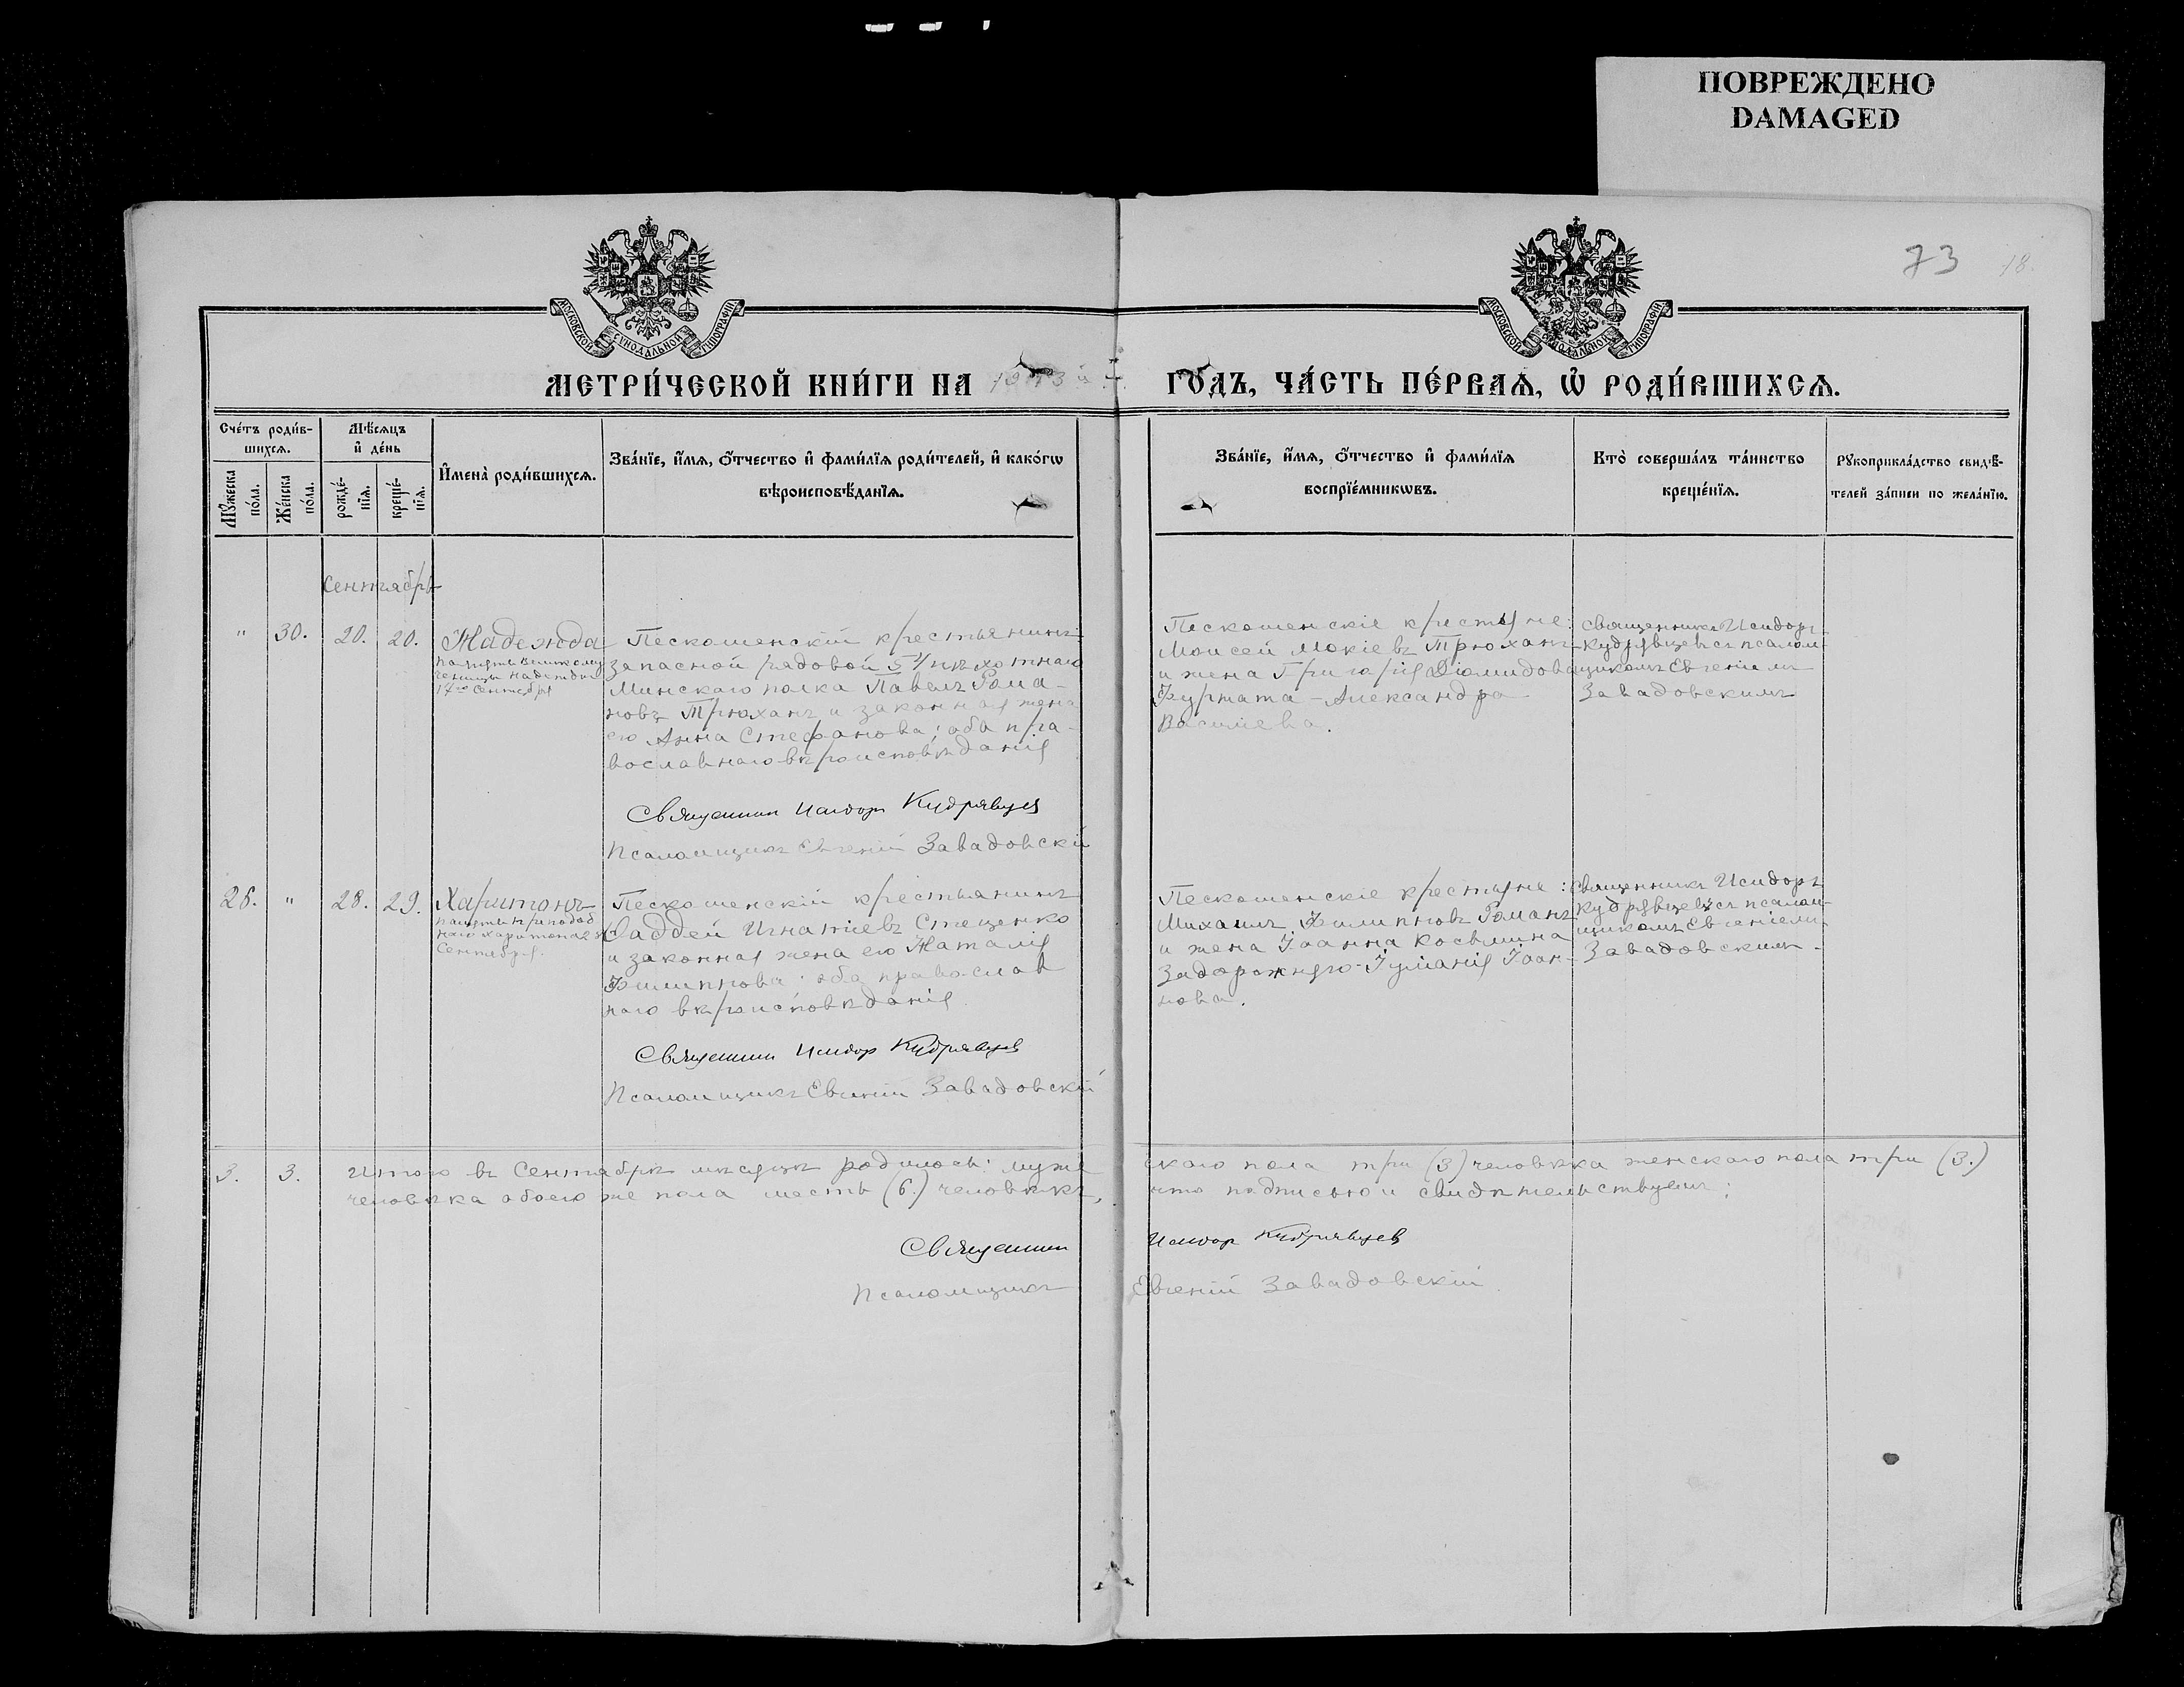 ПОВРЕЖДЕНО
DAMAGED
73 18.
МОСКОВСКОЙ СѴНОДАЛЬНОЙ ТИПОГРАФІИ
МОСКОВСКОЙ СѴНОДАЛЬНОЙ ТИПОГРАФІИ
МЕТРИ́ЧЕСКОЙ КНИ́ГИ НА
ГО́ДЪ, ЧА́СТЬ ПЕ́РВАѦ, Ѽ РОДИ́ВШИХСѦ.
Сче́тъ роди́в-
шихсѧ.
Мꙋ́жеска по́ла.
Же́нска по́ла.
Мѣ́сѧцъ
и҆ де́нь
рожде́-нїѧ.
креще́-нїѧ.
И҆мена̀ роди́вшихсѧ.
Зва́нїе, и҆́мѧ, ѻ҆́тчество и҆ фами́лїѧ роди́телей, и҆ како́гѡ
вѣроисповѣ́данїѧ.
Зва́нїе, и҆́мѧ, ѻ҆́тчество и҆ фами́лїѧ
воспрїе́мникѡвъ.
Кто̀ соверша́лъ та́инство
креще́нїѧ.
Рꙋкоприкла́дство свидѣ́-
телей за́писи по жела́нїю.
Сентябрь
" 30. 20. 20. Надежда
память великому
ченицы Надежды
17го Сентября
Пескошенскій крестьянинъ
запасной рядовой 54 пѣхотнаго
Минскаго полка Павелъ Рома-
новъ Трюханъ и законная жена
его Анна Стефанова; оба пра-
вославнаго вѣроисповѣданія
Священник Исидор Кудрявцев
Псаломщикъ Евгеній Завадовскій
Пескошенскіе крестьяне:
Моисей Мокіевъ Трюханъ
и жена Григорія Діомидова
Фурмата - Александра
Васильева.
Священникъ Исидоръ
Кудрявцевъ съ псалом-
щикомъ Евгеніемъ
Завадовскимъ
26. " 28. 29. Харитонъ
память преподоб
наго Харитона 28
Сентября.
Пескошенскій крестьянинъ
Ѳаддей Игнатіевъ Стеценко
и законная жена его Наталія
Филиппова; оба православ
наго вѣроисповѣданія
Священник Исидор Кудрявцев
Псаломщикъ Евгеній Завадовскій
Пескошенскіе крестьяне:
Михаилъ Филиповъ Романъ
и жена Іоанна Косьмина
Задорожняго - Іуліанія Іоан-
нова.
Священникъ Исидоръ
Кудрявцевъ съ псалом-
щикомъ Евгеніемъ
Завадовскимъ
3. 3. Итого въ Сентябрѣ мѣсяцѣ родилось: муже
скаго пола три (3) человѣка женскаго пола три (3.)
человѣка обоего же пола шесть (6.) человѣкъ,
что подписью и свидѣтельствуемъ:
Священник Исидор Кудрявцев
Псаломщикъ Евгеній Завадовскій